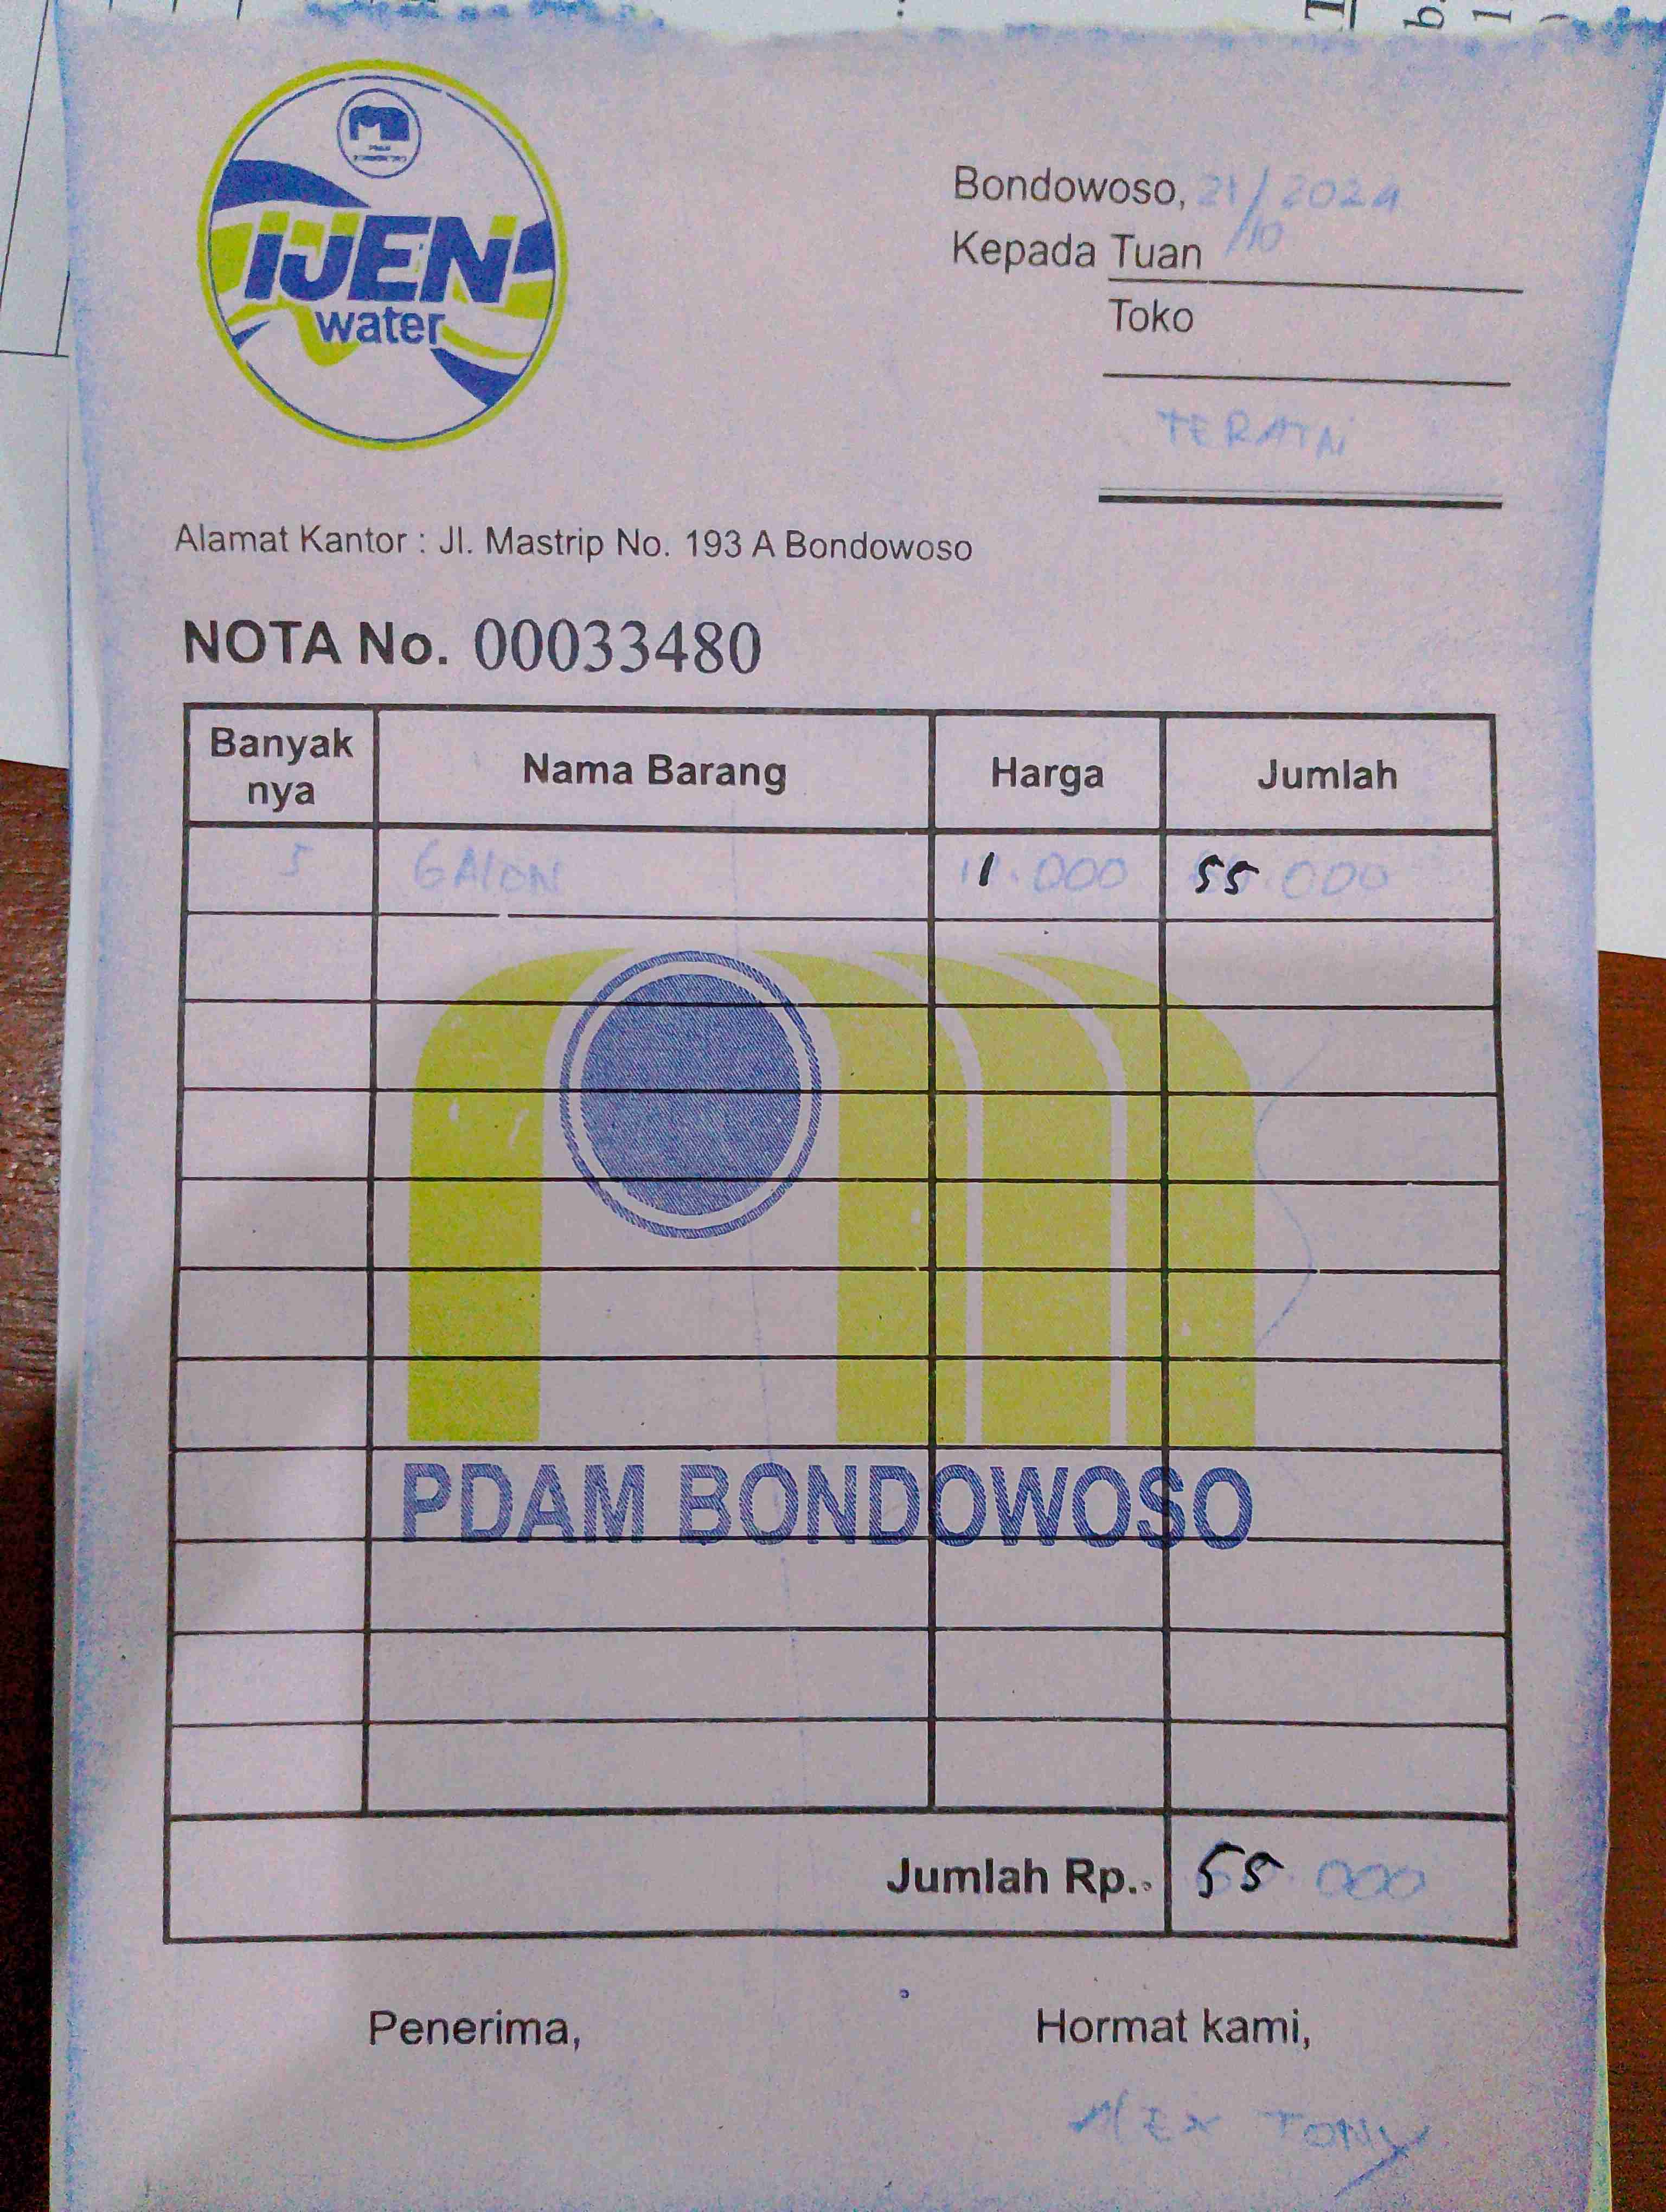 IJEN
water
Bondowoso, 21/10/2024
Kepada Tuan
Toko
TERATAI
Alamat Kantor : Jl. Mastrip No. 193 A Bondowoso
NOTA No. 00033480
Banyak nya Nama Barang Harga Jumlah
5 GAlON 11.000 55.000
PDAM BONDOWOSO
Jumlah Rp.. 55.000
Penerima, Hormat kami,
TONY